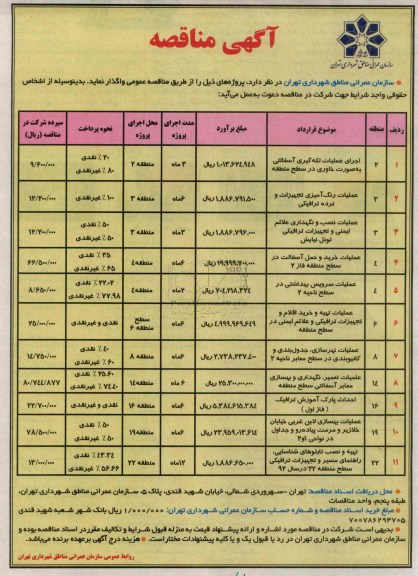 آگهی مناقصه
سازمان عمرانی مناطق شهرداری تهران
سازمان عمرانی مناطق شهرداری تهران در نظر دارد، پروژه‌های ذیل را از طریق مناقصه عمومی واگذار نماید. بدینوسیله از اشخاص
حقوقی واجد شرایط جهت شرکت در مناقصه دعوت به‌عمل می‌آید:
ردیف منطقه موضوع قرارداد مبلغ برآورد مدت اجرای پروژه محل اجرای پروژه نحوه پرداخت سپرده شرکت در مناقصه (ریال)
۱ ۲ اجرای عملیات لکه‌گیری آسفالتی به‌صورت خاوری در سطح منطقه ۳ ماه منطقه ۲ ۲۰٪ نقدی ۸۰٪ غیرنقدی
۲ ۳ عملیات رنگ‌آمیزی تجهیزات و نرده ترافیکی ۱،۸۸۶،۷۹۱،۵۰۰ ریال ۶ماه منطقه ۳ ۱۰۰٪ غیرنقدی ۱۲/۲۰۰/۰۰۰
۳ ۳ عملیات نصب و نگهداری علائم ایمنی و تجهیزات ترافیکی تونل نیایش ۱،۸۸۶،۷۹۶،۰۰۰ ریال منطقه۳ ۵۰٪ نقدی ۵۰٪ غیرنقدی ۱۲/۲۰۰/۰۰۰
۴ ۴ عملیات خرید و حمل آسفالت در سطح منطقه فاز ۲ ۶ماه منطقه۴ ۳۵٪ نقدی ۶۵٪ غیرنقدی ۶۶/۵۰۰/۰۰۰
۵ ۴ عملیات سرویس بهداشتی در سطح ناحیه ۲ منطقه۴ ۲۲.۰۲٪ نقدی ۷۷.۹۸٪ غیرنقدی ۸/۶۵۰/۰۰۰
۶ ۶ عملیات تهیه و خرید اقلام و تجهیزات ترافیکی و علائم ایمنی در سطح منطقه ۴،۹۹۹،۹۶۹،۶۴۹ ریال ۶ماه سطح منطقه ۶ نقدی و غیرنقدی ۲۵/۰۰۰/۰۰۰
۷ ۸ عملیات نهرسازی، جدول‌بندی و کانیوبندی در سطح معابر ناحیه ۲ ۲،۷۳۸،۲۳۷،۴۰۰ ریال ۶ماه منطقه ۸ ۴۰٪ نقدی ۶۰٪ غیرنقدی ۱۴/۷۵۰/۰۰۰
۸ ۱۴ عملیات تعمیر، نگهداری و بهسازی معابر آسفالتی سطح منطقه ۲۵،۲۰۰،۰۰۰،۰۰۰ ریال ۶ ماه منطقه۱۴ ۲۵.۶۰٪ نقدی ۷۴.۴۰٪ غیرنقدی ۸۰/۷۴۴/۸۷۷
۹ ۱۶ احداث پارک آموزش ترافیک (فاز اول) ۵،۳۸۴،۶۱۵،۳۸۴ ریال ۶ماه منطقه۱۶ نقدی و غیرنقدی ۲۲/۷۰۰/۰۰۰
۱۰ ۱۹ عملیات بهسازی لاین غربی خیابان خلازیر و مرمت پیاده‌رو و جداول در نواحی ۱و۲ ۶ماه منطقه۱۹ ۵۰٪ نقدی ۵۰٪ غیرنقدی ۷۸/۵۰۰/۰۰۰
۱۱ ۲۲ تهیه و نصب تابلوهای شناسایی، راهنمای مسیر و تجهیزات ترافیکی سطح منطقه ۲۲ درسال ۹۲ ۱،۸۸۶،۶۵۰،۰۰۰ ریال ۱۲ماه منطقه ۲۲ ۴۳.۳۴٪ نقدی ۵۶.۶۶٪ غیرنقدی ۱۳/۰۰۰/۰۰۰
محل دریافت اسناد مناقصه: تهران -سهروردی شمالی، خیابان شهید قندی، پلاک ۵، سازمان عمرانی مناطق شهرداری تهران،
طبقه پنجم، واحد مناقصات
مبلغ خرید اسناد مناقصه و شماره حساب سازمان عمرانی مناطق شهرداری تهران: ۱/۰۰۰/۰۰۰ ریال بانک شهر شعبه شهید قندی
۷۰۰۷۸۶۲۹۳۷۰۵
بدیهی است شرکت در مناقصه مورد اشاره و ارائه پیشنهاد قیمت به منزله قبول شرایط و تکالیف مقرر در اسناد مناقصه بوده و
سازمان عمرانی مناطق شهرداری تهران در رد یا قبول یک و یا کلیه پیشنهادات مختار است. هزینه درج آگهی برعهده برنده می‌باشد.
روابط عمومی سازمان عمرانی مناطق شهرداری تهران